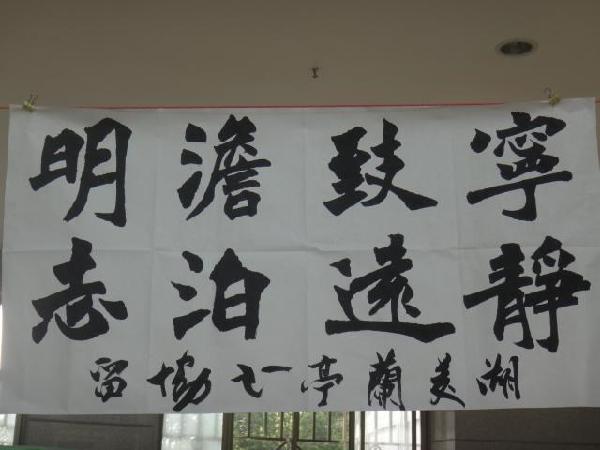 寧靜
致遠
澹泊
明志
湖美蘭亭一七協留